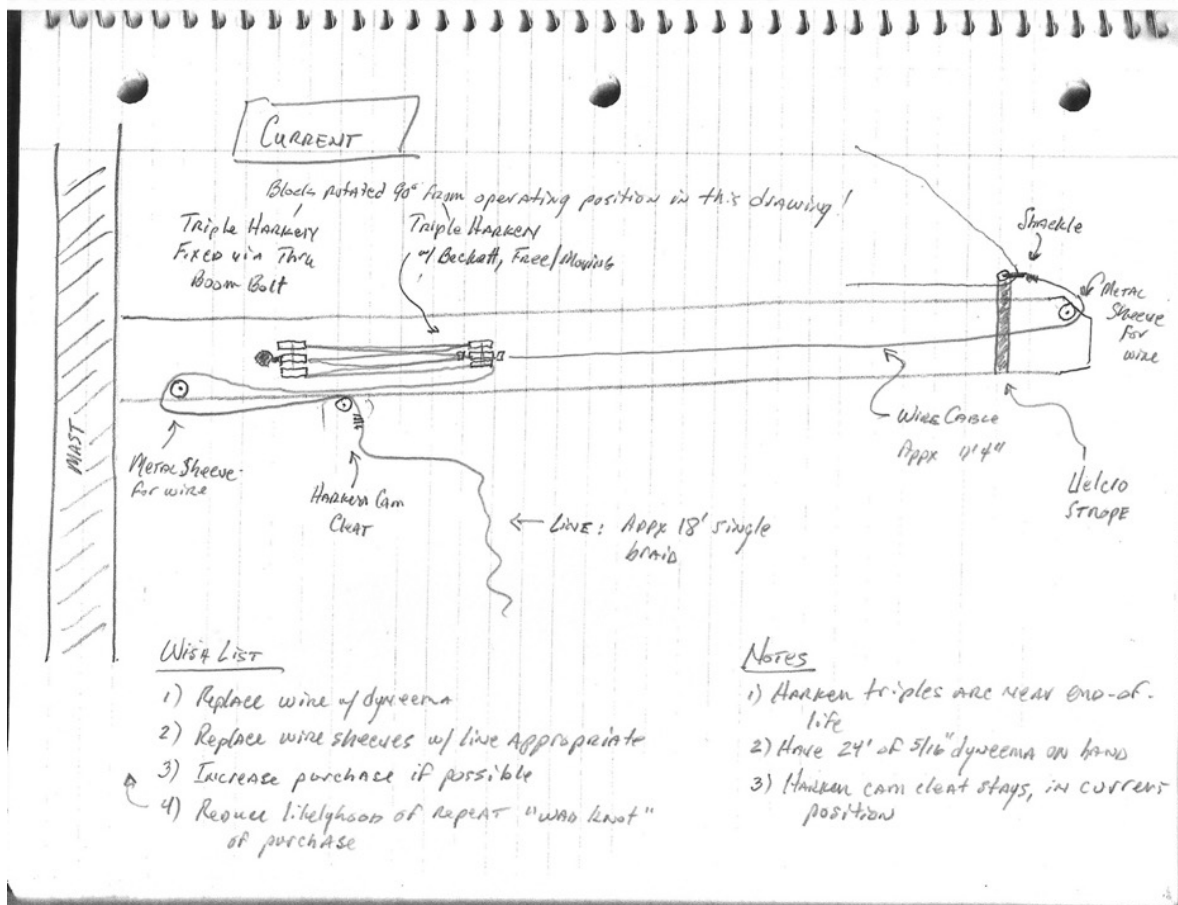 CURRENT
Block rotated 90° from operating position in this drawing!
TRIPLE HARKEN
FIXED via Thru
BOOM BOLT
TRIPLE HARKEN
w/ Beckett, FREE/Moving
Shackle
METAL
Sheeve
For
wire
WIRE CABLE
Appx 11'4"
Velcro
STROPE
MAST
METAL Sheeve
for wire
HARKEN CAM
CLEAT
LINE: Appx 18' single
braid
WISH LIST
1) Replace wire w/ dyneema
2) Replace wire sheeves w/ line appropriate
3) Increase purchase if possible
4) Reduce likelyhood of repeat "wad knot"
of purchase
NOTES
1) HARKEN triples are near end-of-
life
2) Have 24' of 5/16" dyneema on hand
3) Harken cam cleat stays, in current
position